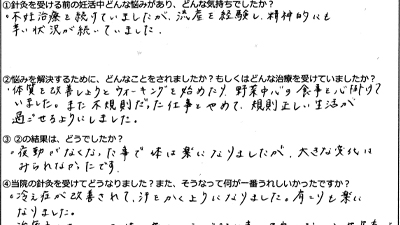 ①針灸を受ける前の妊活中どんな悩みがあり、どんな気持ちでしたか?
・不妊治療を続けていましたが、流産を経験し、精神的にも
辛い状況が続いていました。
②悩みを解決するために、どんなことをされましたか?もしくはどんな治療を受けていましたか?
・体質を改善しようとウォーキングを始めたり、野菜中心の食事を心掛けて
いました。また不規則だった仕事をやめて、規則正しい生活が
過ごせるようにしました。
③ ②の結果は、どうでしたか?
・夜勤がなくなった事で体は楽になりましたが、大きな変化は
みられなかったです。
④当院の針灸を受けてどうなりました?また、そうなって何が一番うれしいかったですか?
・冷え症が改善されて、汗をかくようになりました。肩こりも楽に
なりました。